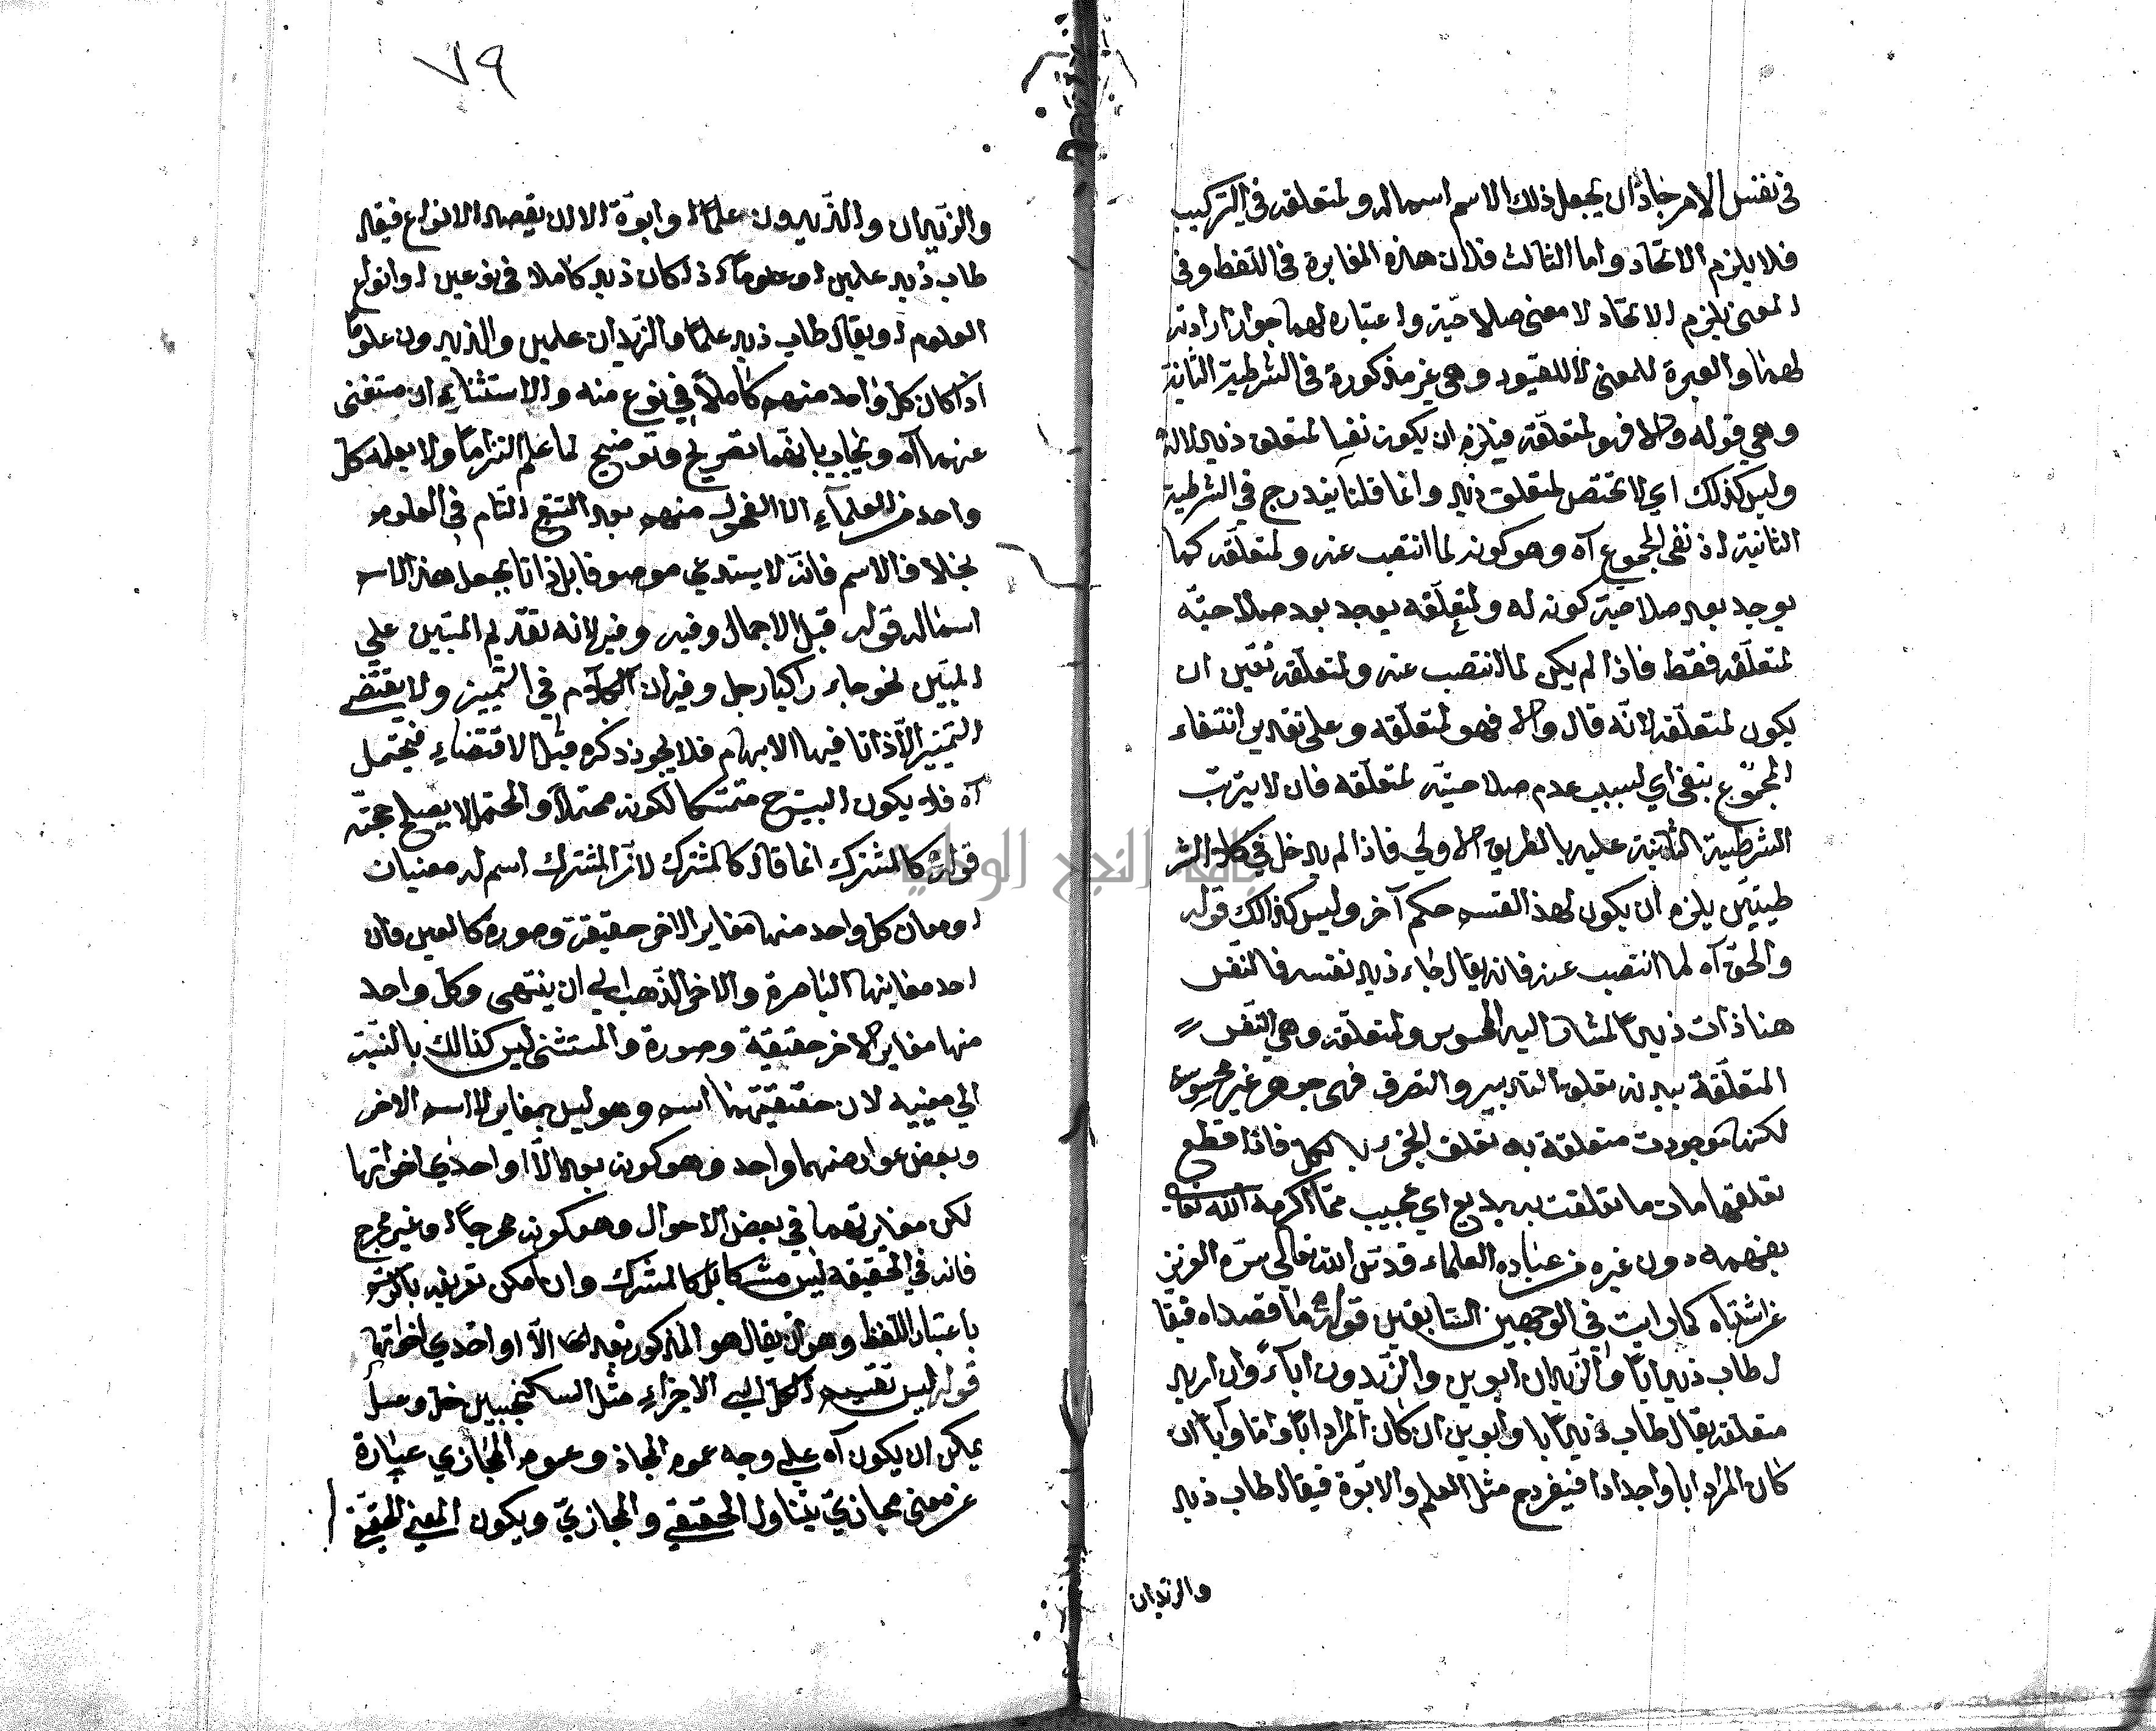 في نفس الامر جاز ان يجعل ذلك الاسم اسما له ولمتعلقه في التركيب
فلا يلزم الاتحاد واما الثالث فلان هذه المغايرة في اللفظ وفي
المعنى يلزم الاتحاد لا معنى صلاحيته واعتباره لهما جواز ارادته
لهما والعبرة للمعنى لا للقيود وهي غير مذكورة في الشرطية الثانية
وهي قوله والا فهو لمتعلقه فيلزم ان يكون نفسا لمتعلق زيد لا له
وليس كذلك اي لا يختص لمتعلق زيد وانما قلنا يندرج في الشرطية
الثانية اذ نفى المجموع آه وهو كونه لما انتصب عنه ولمتعلقه كما
يوجد بعد صلاحية كونه له ولمتعلقه يوجد بعد صلاحيته
لمتعلقه فقط فاذا لم يكن لما انتصب عنه ولمتعلقه تعين ان
يكون لمتعلقه لانه قال والا فهو لمتعلقه وعلى تقدير انتفاء
المجموع بنفي اي لسبب عدم صلاحيته لمتعلقه فان لا يترتب
الشرطية الثانية عليه بالطريق الاولي فاذا لم يدخل في كلا الشر
طيتين يلزم ان يكون لهذ القسم حكم آخر وليس كذالك قوله
والحق آه لما انتصب عنه فانه يقال جاء زيد نفسه فالنفس
هنا ذات زيد المشار اليه المحسوس ولمتعلقه وهي النفس
المتعلقة ببدنه تعلق التدبير والتصرف فهي جوهر غير محسوسة
لكنها موجودت متعلقة به تعلق الجزء بالكل فاذا قطع
تعلقها مات ما تعلقت به بديع اي عجيب مما اكرمه الله تعالى
بعضهم دون غيره من عباده العلماء قدس الله تعالى سره العزيز
عن اشتباه كما رايت في الوجهين السابقين قوله ما قصداه فيقا
ل طاب زيد ابا والزيدان ابوين والزيدون اباء وان اريد
متعلقه يقال طاب زيد ابا وابوين ان كان المراد ابا واما وابا ان
كان المراد ابا واجدادا فيفرد مثل العلم والابوة فيقال طاب زيد
والزيدان
٧٩
والزيدان والزيدون علما وابوة الا ان يقصد الانواع فيقال
طاب زيد علمين او علوما اذا كان زيد كاملا في نوعين او انواع
العلوم او يقال طاب زيد علما والزيدان علمين والزيدون علوما
اذا كان كل واحد منهم كاملا في نوع منه والاستثناء ان مستغنى
عنهما آه ويجاب بانهما تصريح وتوضيح لما علم التزاما ولا يعلمه كل
واحد من العلماء الا الفحول منهم بعد التتبع التام في العلوم
بخلاف الاسم فانه لا يستدعي موصوفا بل ذاتا يجعل هذا الاسم
اسما له قوله قبل الاجمال وفيه وفيه لانه تقديم المبين علي
المبين نحو جاء راكبا رجل وفيه ان الكلام في التمييز ولا يقتضي
التمييز الا ذاتا فيها الابهام فلا يجوز ذكره قبل الاقتضاء فيحتمل
آه فلا يكون البيت ح متمسكا لكونه محتملا والمحتمل لا يصلح حجة
قوله كالمشترك انما قال كالمشترك لان المشترك اسم له معنيان
او معان كل واحد منها مغاير الاخر حقيقة وصورة كالعين فان
احد معاينها الباصرة والاخر الذهب الي ان ينتهي وكل واحد
منها مغاير الاخر حقيقة وصورة والمستثنى ليس كذالك بالنسبة
الي معنييه لان حقيقتهما اسم وهو ليس بمغاير للاسم الاخر
وبعض عوارضهما واحد وهو كونه بعد الا او احدي اخواتها
لكن مغايرتهما في بعض الاحوال وهو كونه مخرجا او غير مخرج
فانه في الحقيقة ليس مشتركا بل كالمشترك وان امكن تعريفه
باعتبار اللفظ وهو ان يقال هو المذكور بعد الا او احدي اخواتها
قوله ليس تقسيم الكل الي الاجزاء مثل السكنجبين خل وعسل
يمكن ان يكون آه علي وجه عموم المجاز وعموم المجازي عبارة
عن معنى مجازي يتناول الحقيقي والمجازي ويكون المعني الحقيقي
جامعة النجاح الوطنية